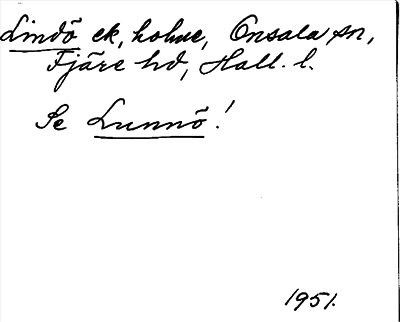 Lindö ek, holme, Onsala sn,
Fjäre hd, Hall. l.
Se Lunnö!
1951.